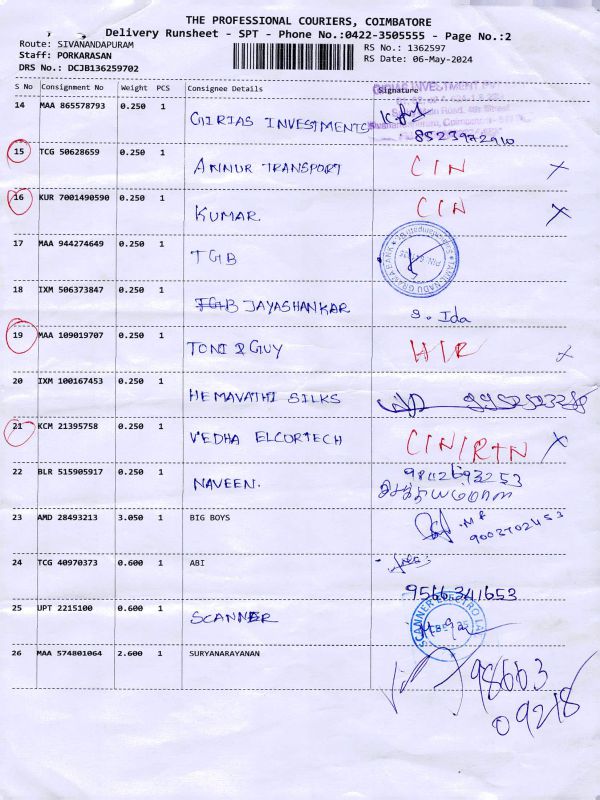 THE PROFESSIONAL COURIERS, COIMBATORE
Delivery Runsheet - SPT - Phone No.:0422-3505555 - Page No.:2
Route: SIVANANDAPURAM
RS No.: 1362597
Staff: PORKARASAN
RS Date: 06-May-2024
DRS No.: DCJB136259702
S No Consignment No Weight PCS Consignee Details Signature
14 MAA 865578793 0.250 1 CHIRIAS INVESTMENTS
8523972910
15 TCG 50628659 0.250 1 ANNUR TRANSPORT CIN X
16 KUR 7001490590 0.250 1 KUMAR CIN X
17 MAA 944274649 0.250 1 TGB
18 IXM 506373847 0.250 1 TGB JAYASHANKAR S. Ida
19 MAA 109019707 0.250 1 TONI & GUY H/R X
20 IXM 100167453 0.250 1 HEMAVATHI SILKS
21 KCM 21395758 0.250 1 VEDHA ELCORTECH CIN/RTN X
22 BLR 515905917 0.250 1 NAVEEN.
23 AMD 28493213 3.050 1 BIG BOYS
9003702453
24 TCG 40970373 0.600 1 ABI
9566341653
25 UPT 2215100 0.600 1 SCANNER
26 MAA 574801064 2.600 1 SURYANARAYANAN
98663
09218